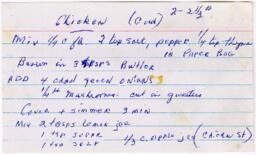 Chicken (Cont) 2 - 2 1/2
Mix 1/4 c fl. 2 tsp salt, pepper 1/4 tsp thyme
in Paper Bag
Brown in 3 tbsps Butter
ADD 4 chopd green onions
1/4 lb Mushrooms. cut in quarters
Cover + simmer 3 min
Mix 2 tbsps lemon jce
1 tsp sugar 1/3 c. apple jce (Chicken St)
1 tsp salt